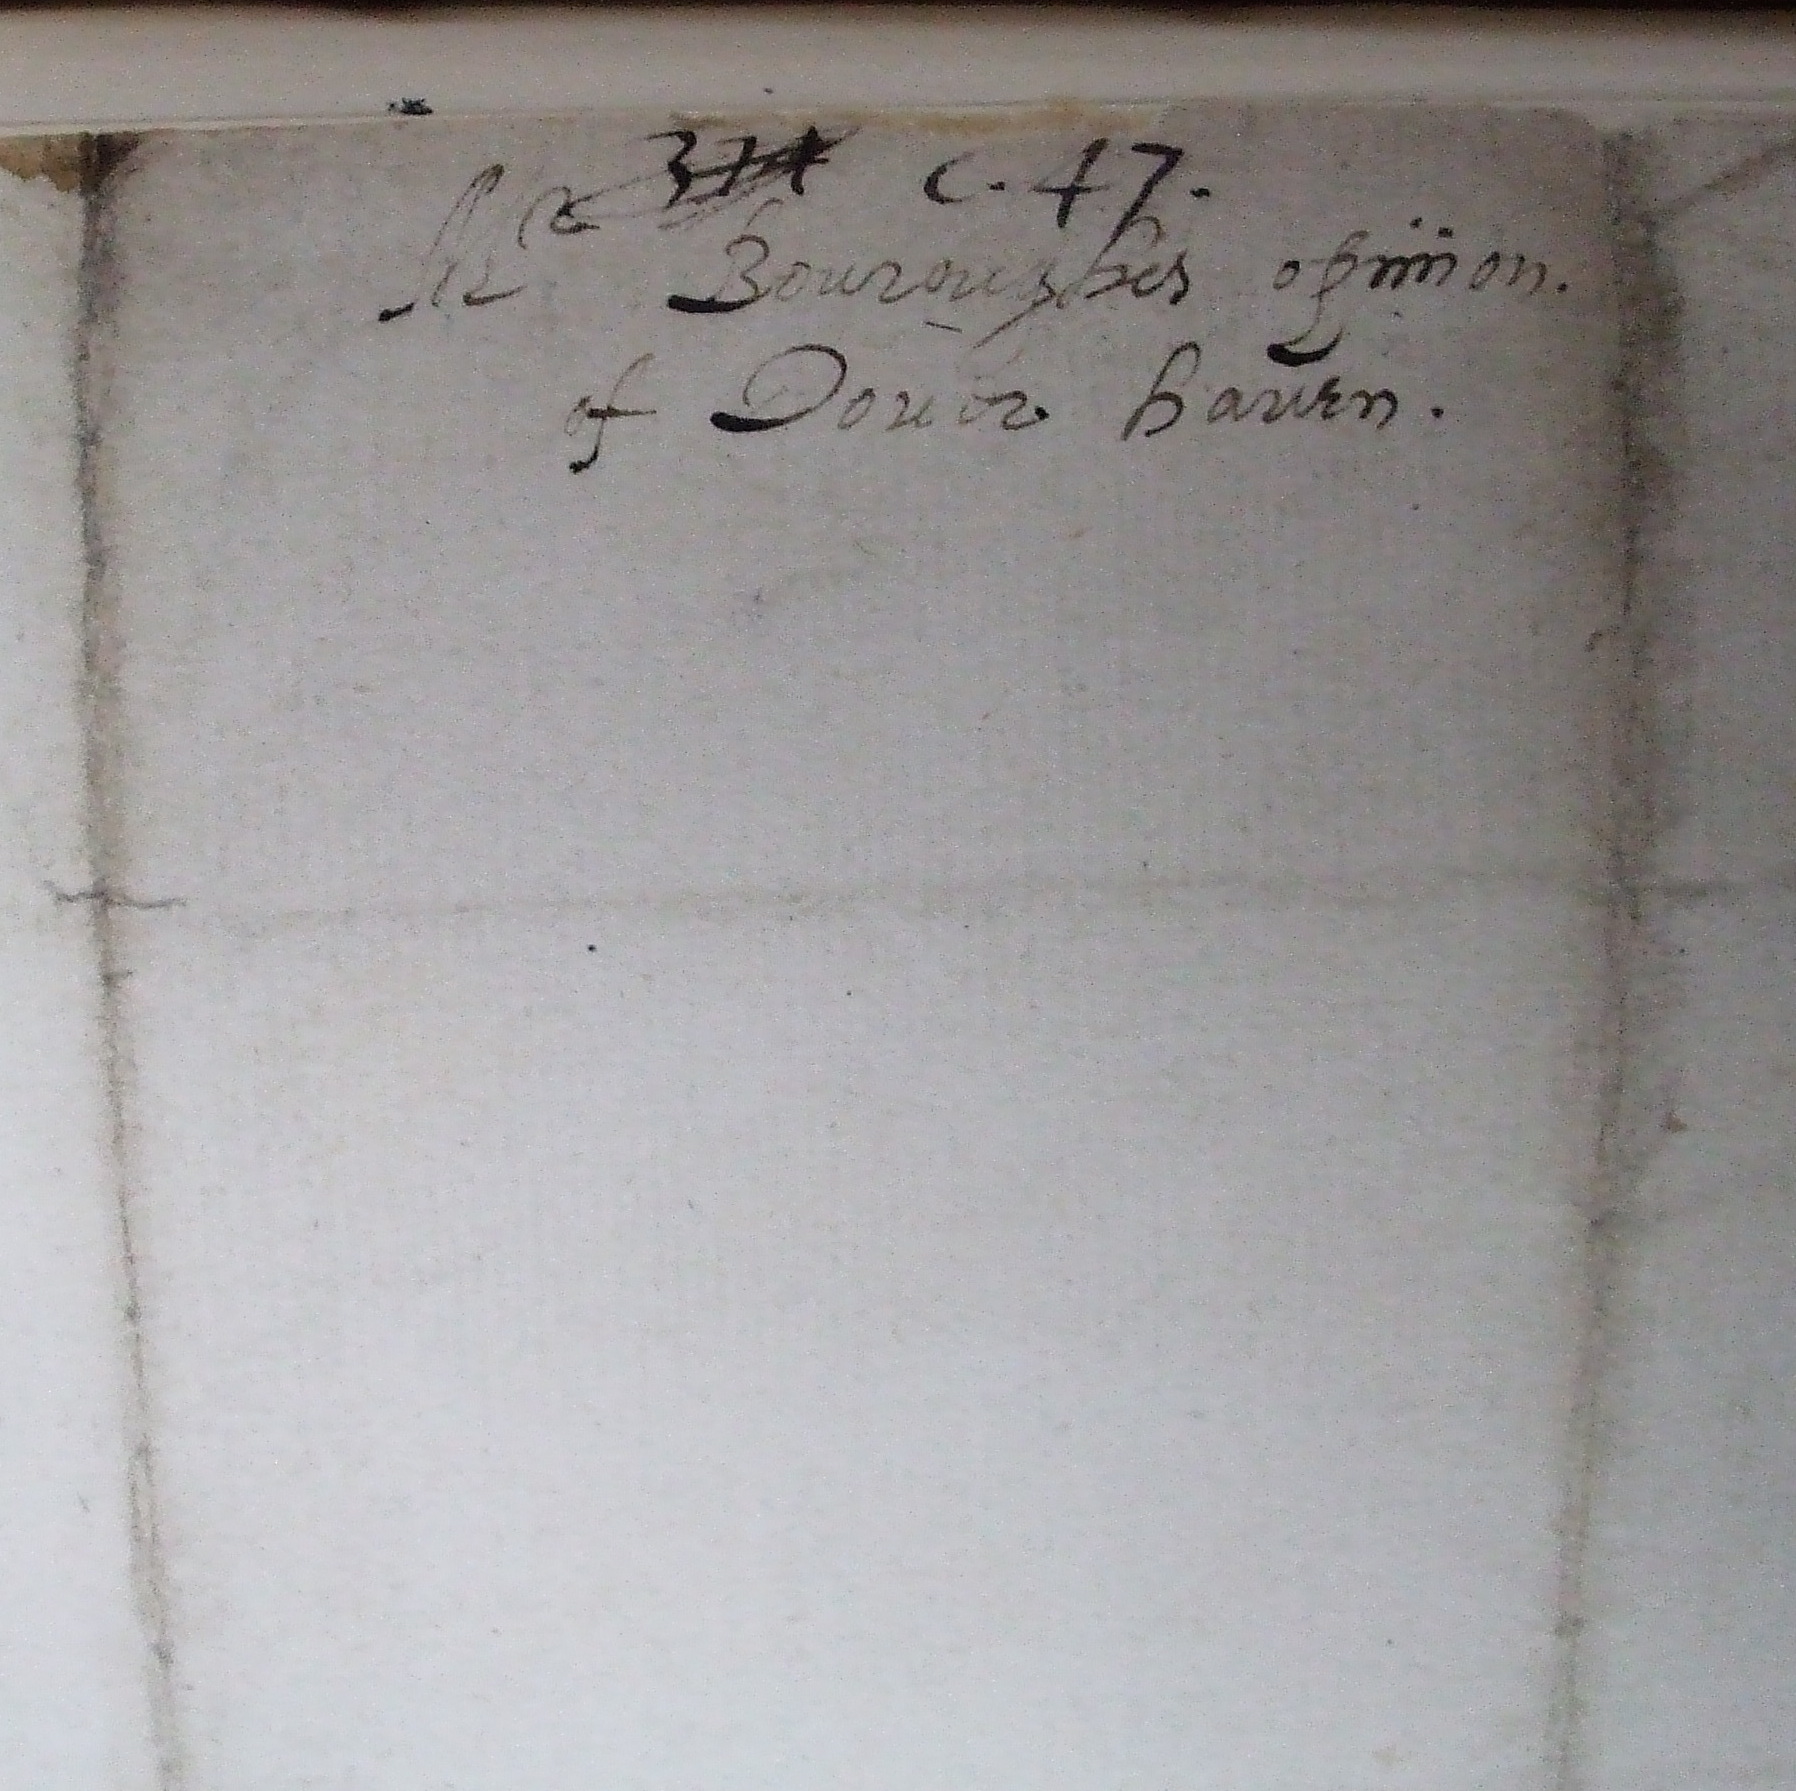 374 C. 47.
Mr Bouroughes opinion.
of Dover haven.